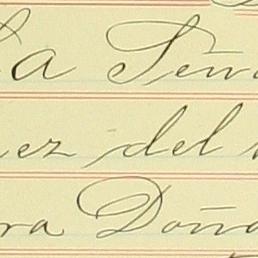 La Seño
ez del
ra Doña